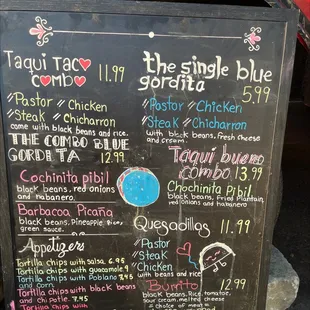 Taqui Taco
combo 11.99
Pastor Chicken
Steak Chicharron
come with black beans and rice.
THE COMBO BLUE
GORDITA 12.99
Cochinita pibil
black beans, red onions
and habanero.
Barbacoa Picaña
black beans, Pineapple Rice,
green sauce.
Appetizers
Tortilla chips with salsa 6.95
Tortilla chips with guacamole 9
Tortilla chips with Poblano
and corn
Tortilla chips with black beans
and chipotle 7.45
Tortilla chips with
the single blue
gordita 5.99
Pastor Chicken
Steak Chicharron
with black beans, fresh cheese
and cream.
Taqui bueno
combo 13.99
Chochinita Pibil
black beans, Fried Plantain,
red onions and habanero
Quesadillas 11.99
Pastor
Steak
Chicken
with beans and rice
Burrito 12.99
black beans, Rice, tomatoe,
sour cream melted cheese
choice of meat